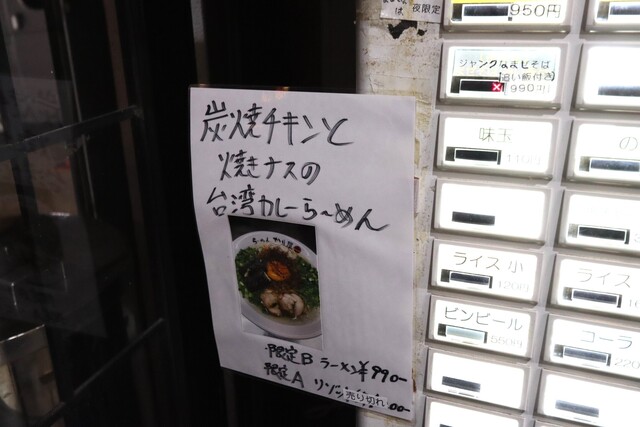 炭焼チキンと
焼きナスの
台湾カレーら〜めん
限定B ラーメン¥990-
限定A リゾッ売り切れ00-
は、夜限定
950円
ジャンクなまぜそば
(追い飯付き)
990円
味玉
140円
ライス 小
120円
ライス
ビンビール
550円
コーラ
220